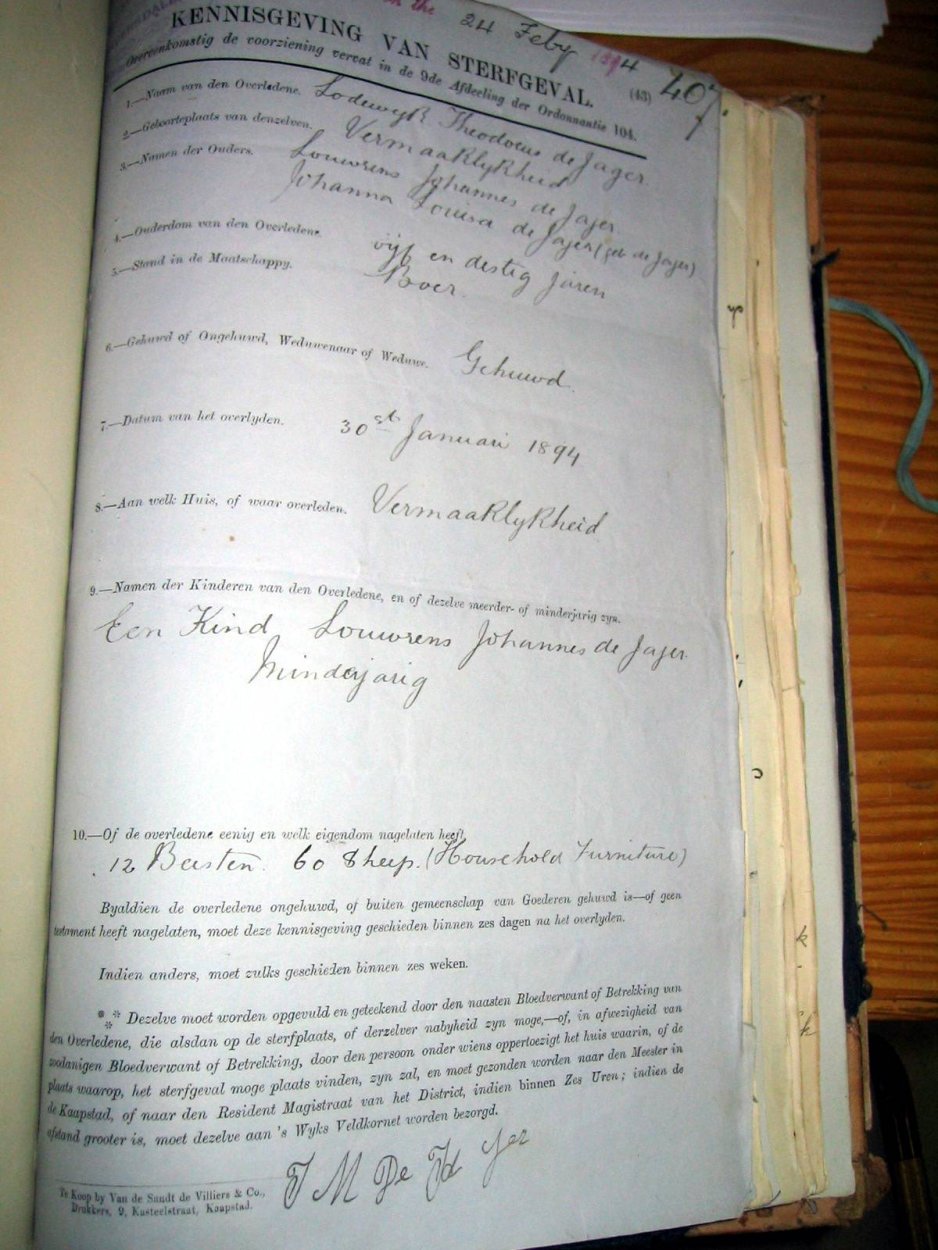 on the 24 Feby 1894
KENNISGEVING VAN STERFGEVAL. (43) 407
Overeenkomstig de voorziening vervat in de 9de Afdeeling der Ordonnantie 104.
1.—Naam van den Overledene. Lodewyk Theodorus de Jager
2.—Geboorteplaats van denzelven. Vermaaklykheid
3.—Namen der Ouders. Louwrens Johannes de Jager
Johanna Louisa de Jager (geb de Jager)
4.—Ouderdom van den Overledene. vyf en dertig Jaren
5.—Stand in de Maatschappy. Boer.
6.—Gehuwd of Ongehuwd, Weduwenaar of Weduwe. Gehuwd.
7.—Datum van het overlyden. 30st Januari 1894
8.—Aan welk Huis, of waar overleden. Vermaaklykheid
9.—Namen der Kinderen van den Overledene, en of dezelve meerder- of minderjarig zyn.
Een Kind Louwrens Johannes de Jager
Minderjarig
10.—Of de overledene eenig en welk eigendom nagelaten heeft,
12 Beesten. 60 Sheep. (Household Furniture)
Byaldien de overledene ongehuwd, of buiten gemeenschap van Goederen gehuwd is—of geen
testament heeft nagelaten, moet deze kennisgeving geschieden binnen zes dagen na het overlyden.
Indien anders, moet zulks geschieden binnen zes weken.
*** Dezelve moet worden opgevuld en geteekend door den naasten Bloedverwant of Betrekking van
den Overledene, die alsdan op de sterfplaats, of derzelver nabyheid zyn moge,—of, in afwezigheid van
zoodanigen Bloedverwant of Betrekking, door den persoon onder wiens oppertoezigt het huis waarin, of de
plaats waarop, het sterfgeval moge plaats vinden, zyn zal, en moet gezonden worden naar den Meester in
de Kaapstad, of naar den Resident Magistraat van het District, indien binnen Zes Uren; indien de
afstand grooter is, moet dezelve aan 's Wyks Veldkornet worden bezorgd.
Te Koop by Van de Sandt de Villiers & Co.,
Drukkers, 9, Kasteelstraat, Kaapstad.